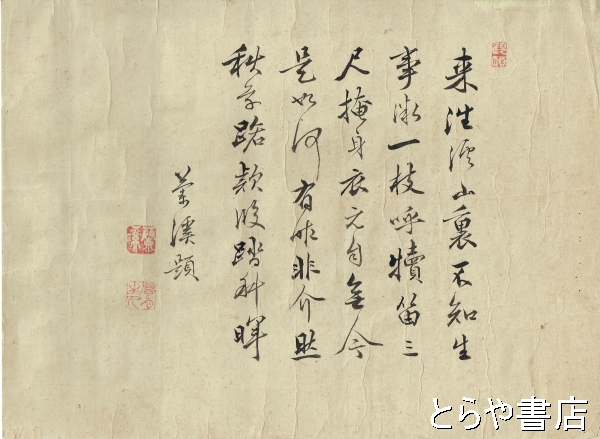 来往渓山裏不知生
事微一枝呼犢笛三
尺掩身衣元自無今
是如何有昨非介然
秋草路款段踏斜暉
蘭溪題
とらや書店